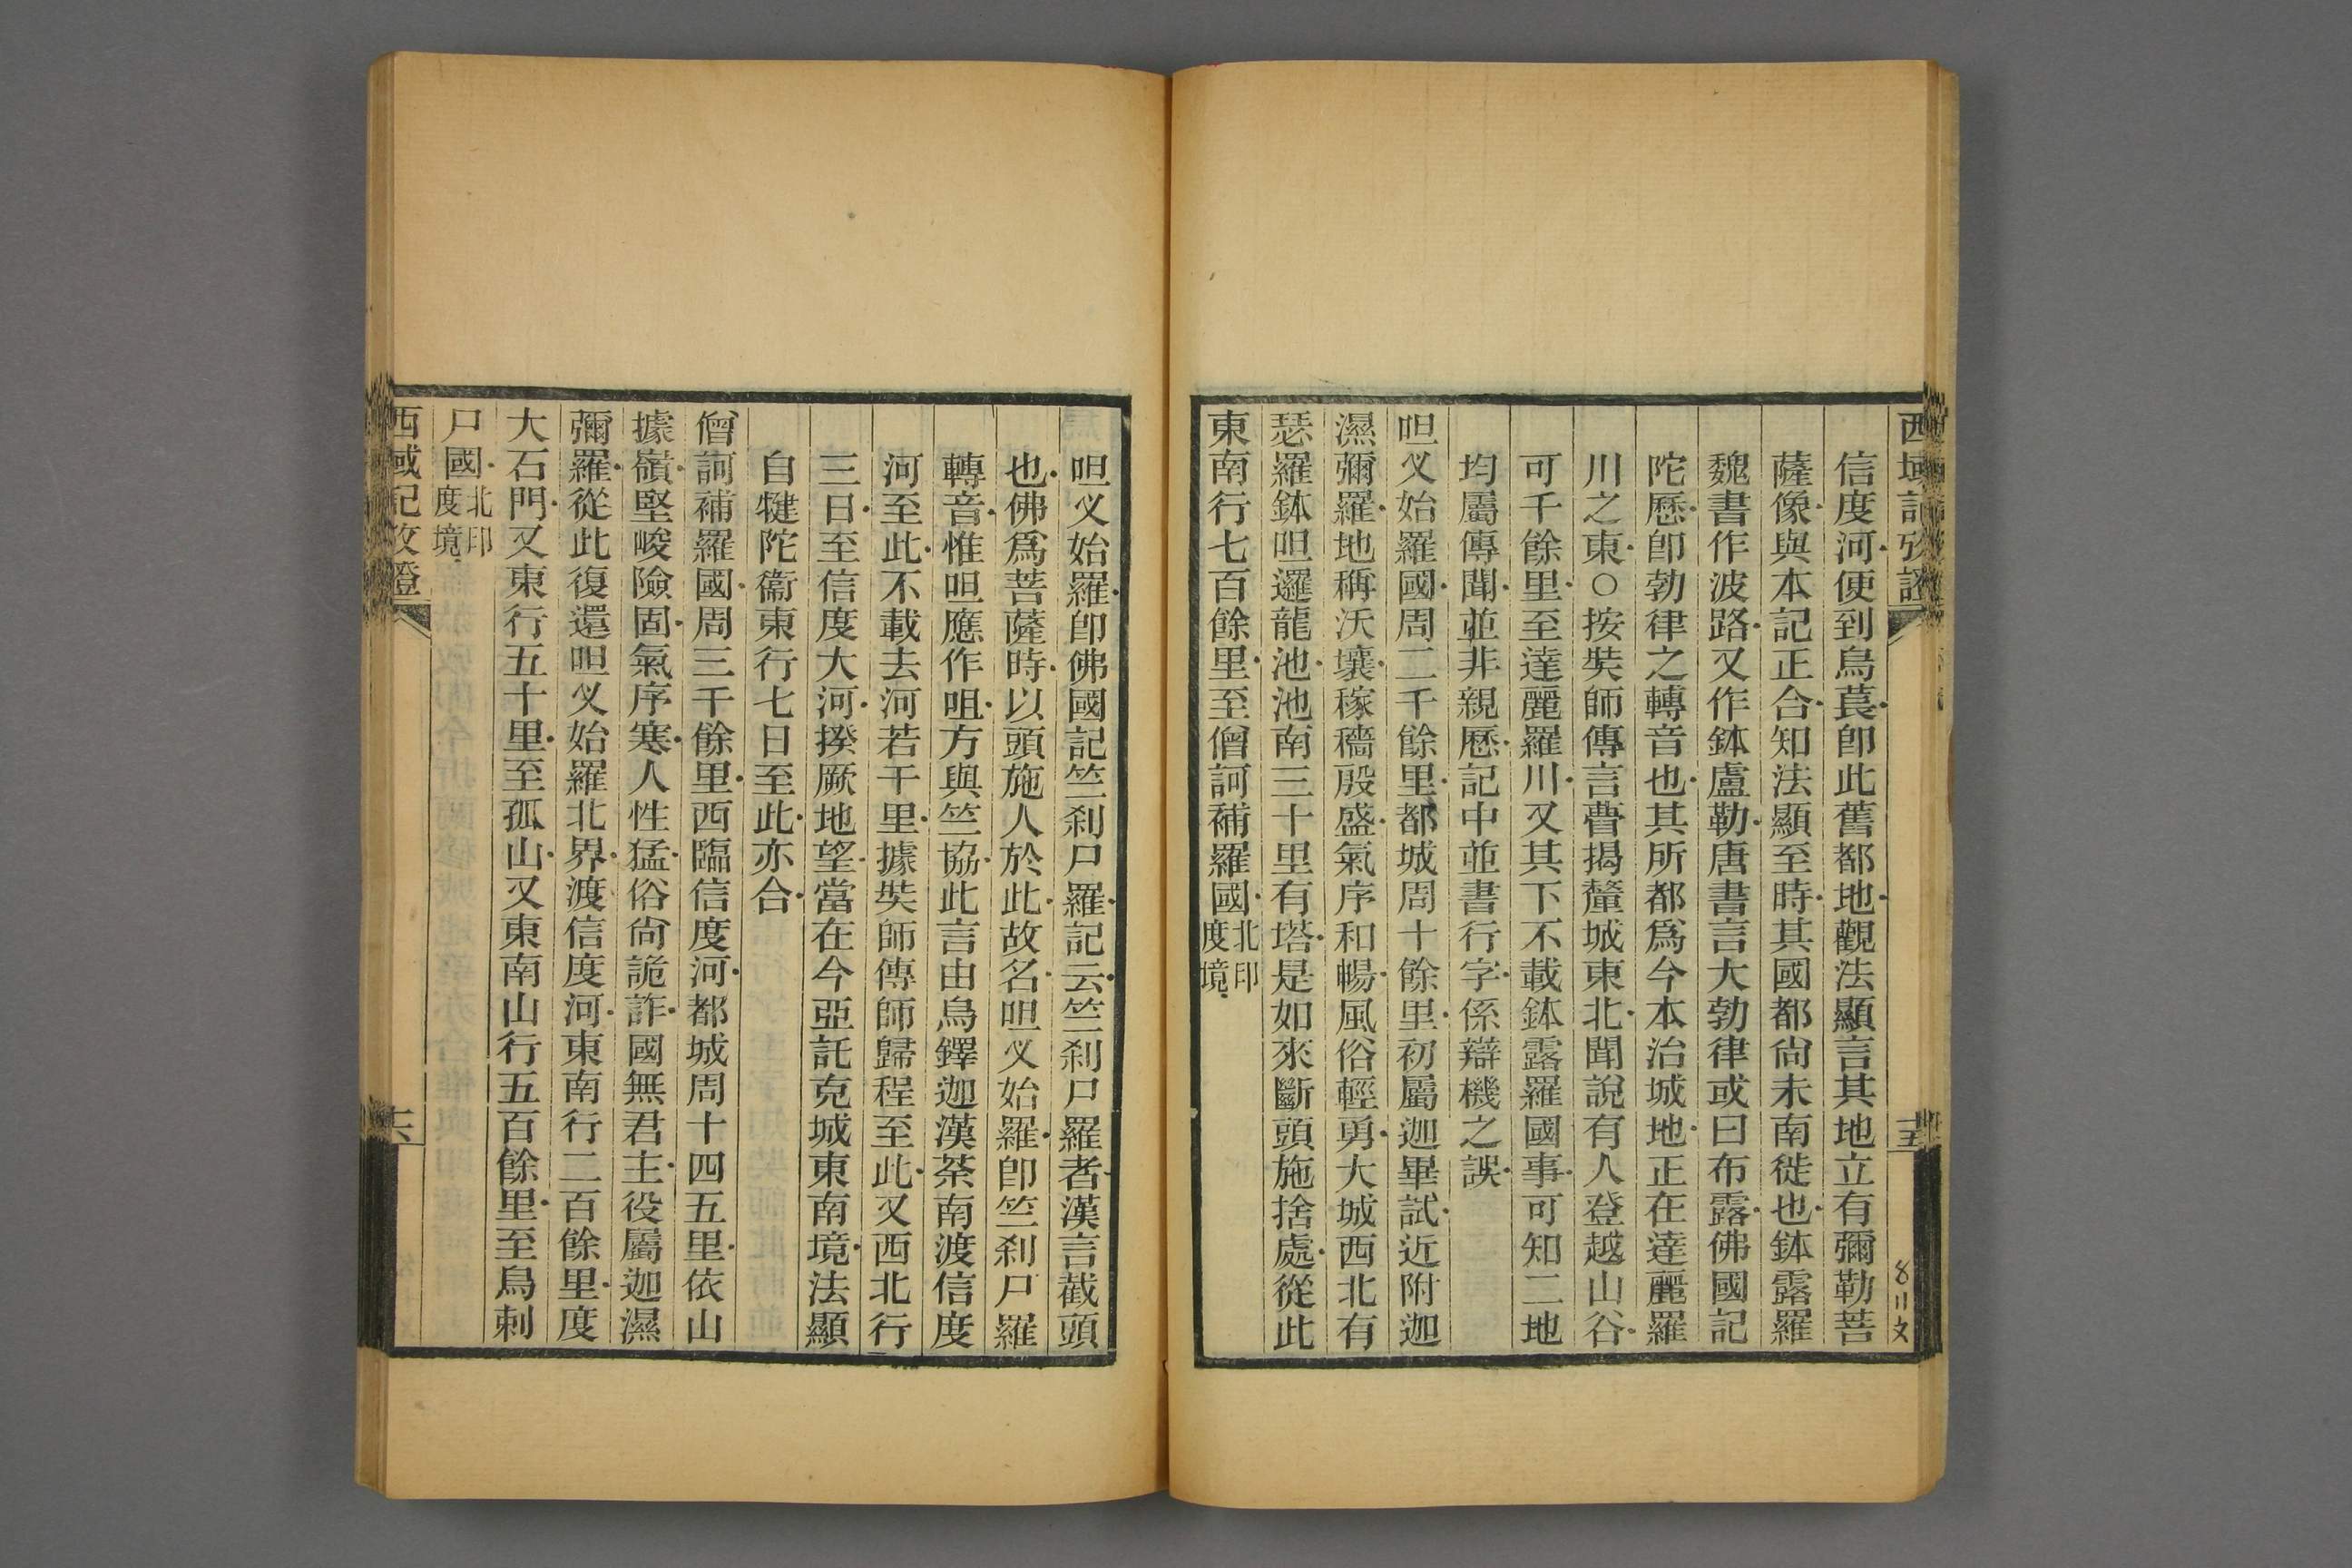 西域記攷證
十五
信度河便到烏萇卽此舊都地觀法顯言其地立有彌勒菩
薩像與本記正合知法顯至時其國都尙未南徙也鉢露羅
魏書作波路又作鉢盧勒唐書言大勃律或曰布露佛國記
陀歷卽勃律之轉音也其所都爲今本治城地正在達麗羅
川之東○按奘師傳言瞢揭釐城東北聞說有人登越山谷
可千餘里至達麗羅川又其下不載鉢露羅國事可知二地
均屬傳聞並非親歷記中並書行字係辯機之誤
呾叉始羅國周二千餘里都城周十餘里初屬迦畢試近附迦
濕彌羅地稱沃壤稼穡殷盛氣序和暢風俗輕勇大城西北有
瑟羅鉢呾邏龍池池南三十里有塔是如來斷頭施捨處從此
東南行七百餘里至僧訶補羅國北印度境
呾叉始羅卽佛國記竺刹尸羅記云竺刹尸羅者漢言截頭
也佛爲菩薩時以頭施人於此故名呾叉始羅卽竺刹尸羅
轉音惟呾應作咀方與竺協此言由烏鐸迦漢荼南渡信度
河至此不載去河若干里據奘師傳師歸程至此又西北行
三日至信度大河揆厥地望當在今亞託克城東南境法顯
自犍陀衞東行七日至此亦合
僧訶補羅國周三千餘里西臨信度河都城周十四五里依山
據嶺堅峻險固氣序寒人性猛俗尙詭詐國無君主役屬迦濕
彌羅從此復還呾叉始羅北界渡信度河東南行二百餘里度
大石門又東行五十里至孤山又東南山行五百餘里至烏剌
尸國北印度境
西域記攷證
十六